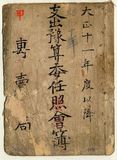 大正十一年度以降
支出豫算委任照會簿
甲
專賣局